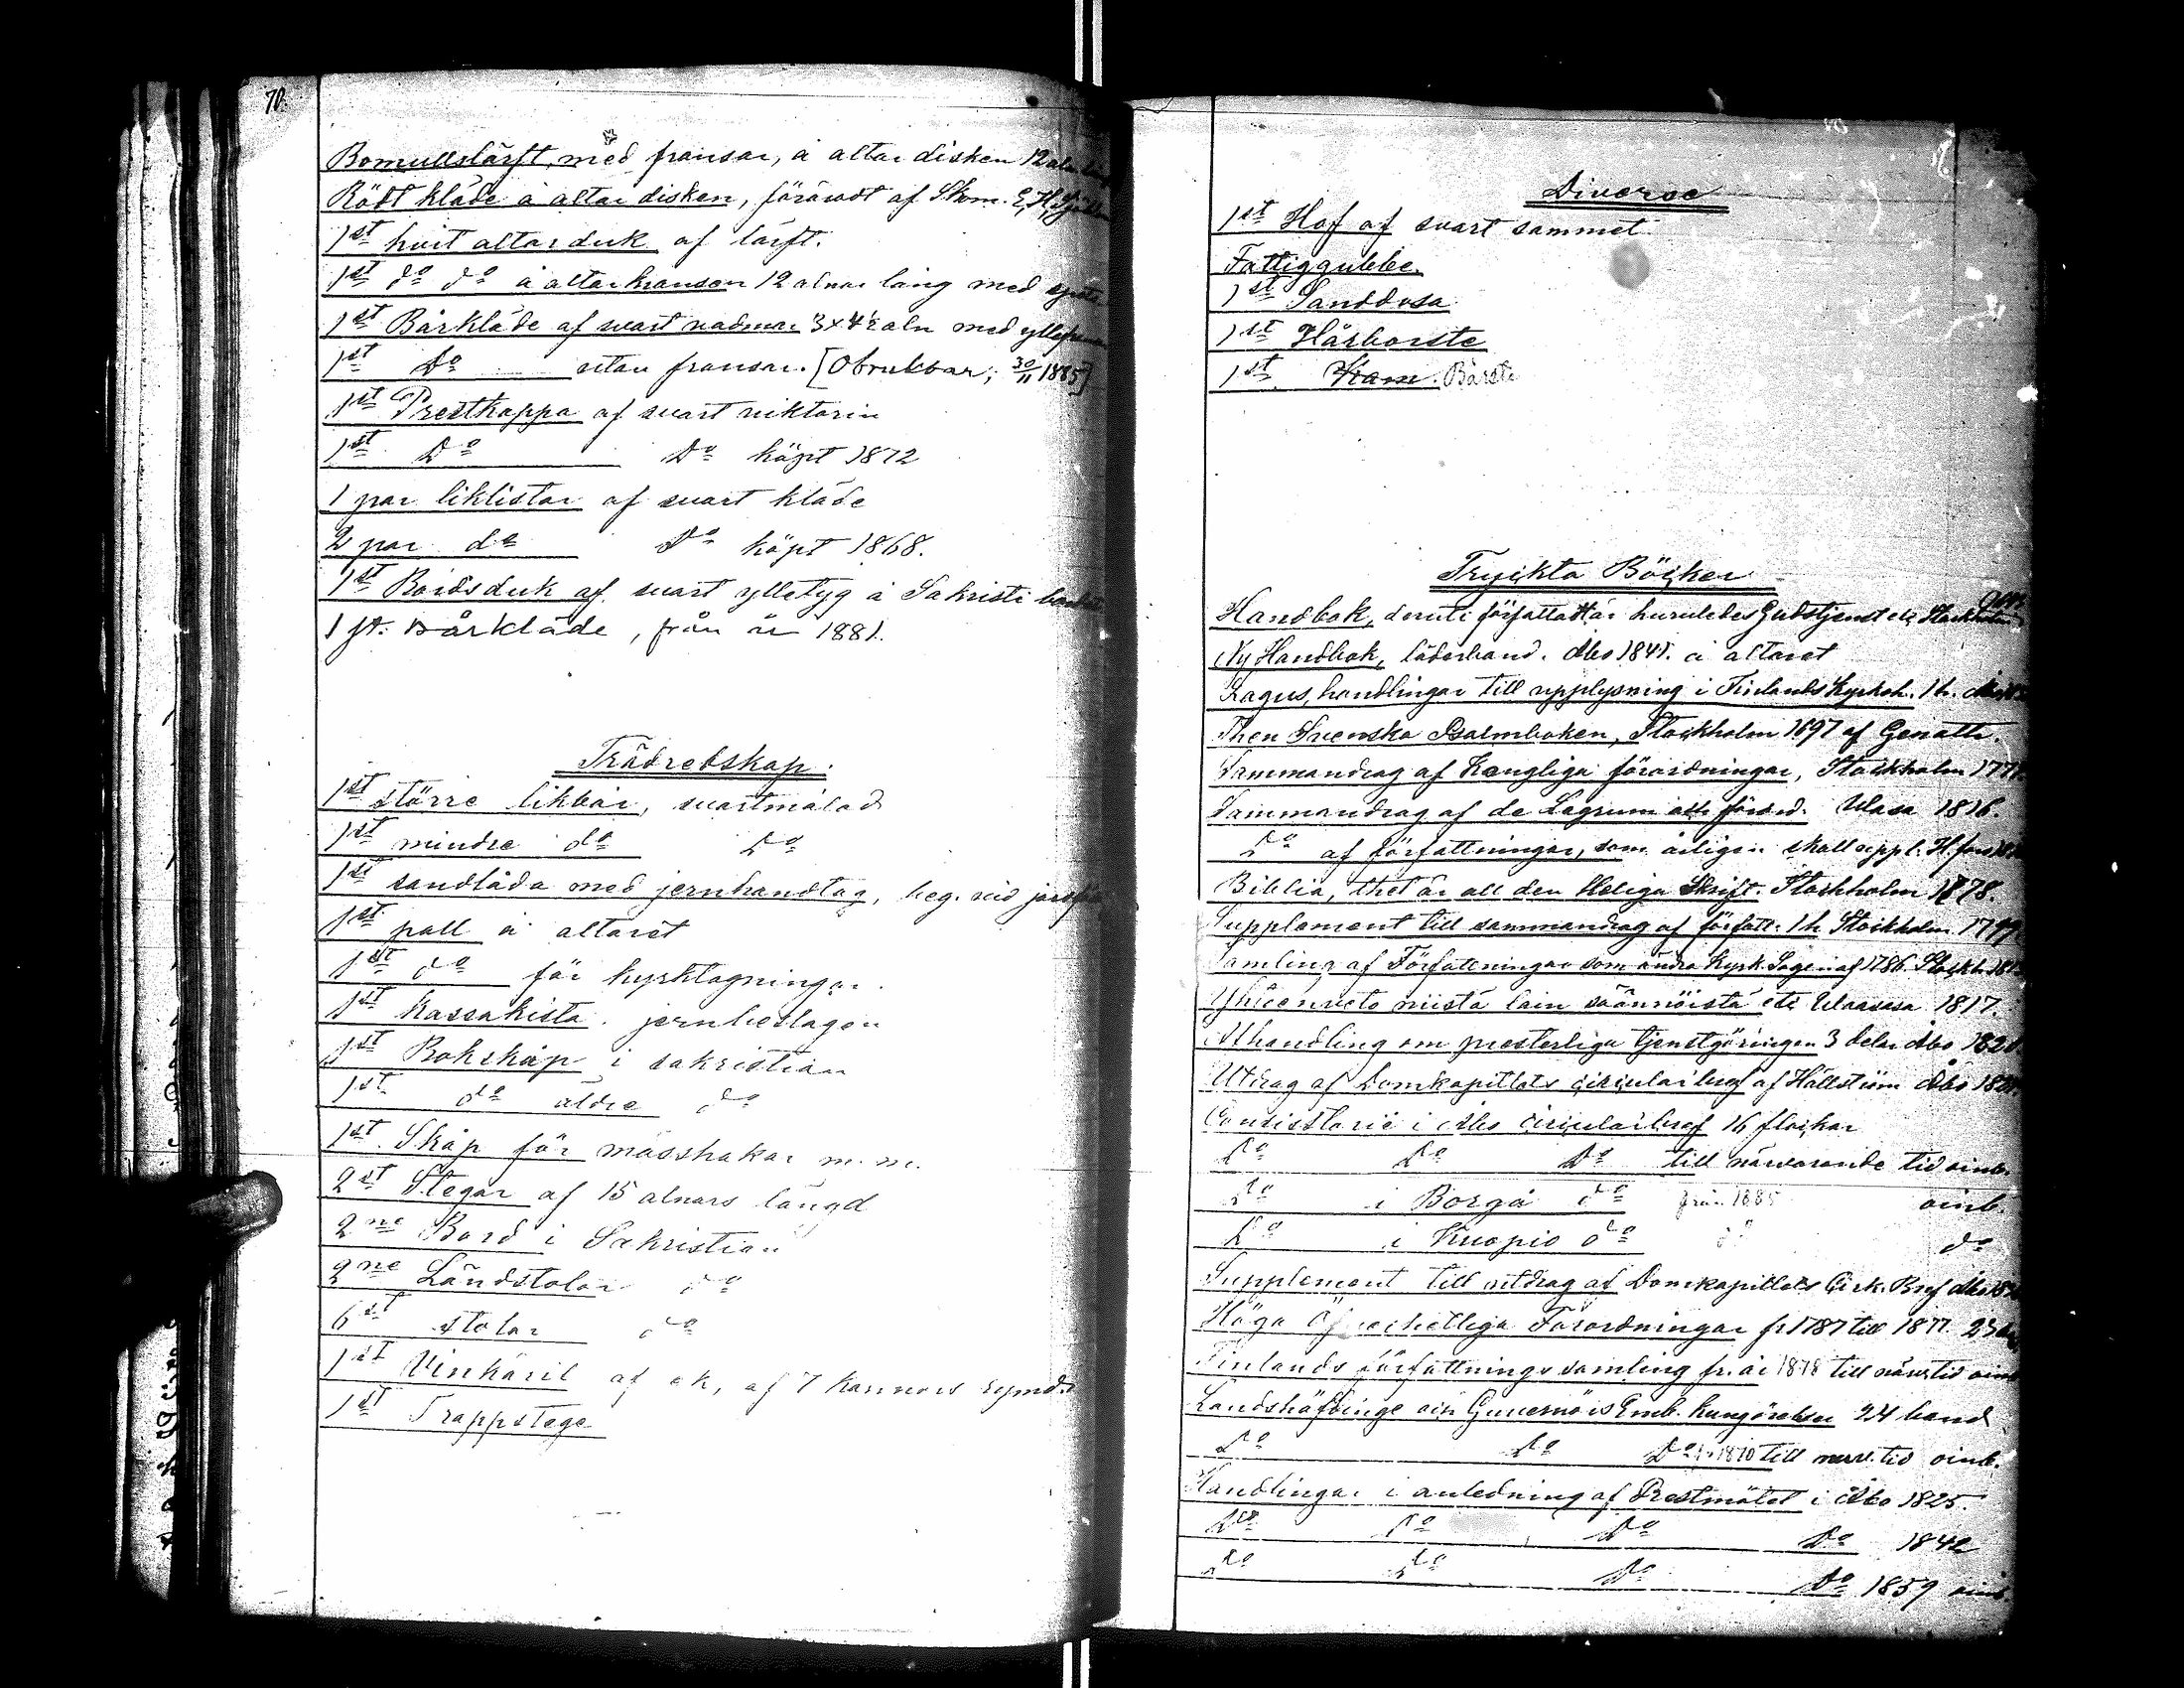 70.
Bomullslärft, med fransar, å altar disken 12 aln
Rödt kläde å altar disken, föräradt af Skom. E. H.
1 st hvit altarduk af lärft.
1 st do do å altarkransen 12 alnar lång med
1 st Bårkläde af svart vadmar 3 x 4½ aln med
1 st Do utan fransar. [Obrukbar; 30/11 1885]
1 st Prestkappa af svart viktorin
1 st Do Do köpt 1872
1 par liklistor af svart kläde
2 par do Do köpt 1868.
1 st Bordsduk af svart ylletyg å Sakristi bordet
1 st. Bårkläde, från år 1881.
Trädredskap.
1 st större likbår, svartmålad
1 st mindre do Do
1 st sandlåda med jernhandtag, beg. vid
1 st pall å altaret
1 st do för kyrktagningar.
1 st Kassakista. jernbeslagen
1 st Bokskåp i sakristian
1 st do äldre do
1 st. Skåp för mässhakar m. m.
2 st Stegar af 15 alnars längd
2 ne Bord i Sakristian
2 ne Ländstolar do
6 st stolar do
1 st Vinkäril af ek, af 7 kannors rymd.
1 st Trappstege
Diverse
1 st Hof af svart sammet
Fattiggubbe.
1 st Sanddosa
1 st Hårborste
1 st Kam. Bårste
Tryckta Böcker
Handbok, deruti författadt är huruledes Gudstjenst etc Stockholm
Ny Handbok, läderband. Åbo 1841. å altaret
Lagus, handlingar till upplysning i Finlands Kyrkoh. 1 h.
Then Swenska Psalmboken, Stockholm 1697 af Genath.
Sammandrag af Kongliga förordningar, Stockholm
Sammandrag af de Lagrum och förord. Wasa 1816.
Do af författningar, som årligen skall uppl. H.fors
Biblia, thet är all den Heliga Skrift. Stockholm 1878.
Supplement till sammandrag af författ. 1 h Stockholm
Samling af Författningar som ändra Kyrk. Lagen af 1786. Stockh.
Yhteenveto niistä lain säännöistä etc Waasasa 1817.
Afhandling om presterliga tjenstgöringen 3 delar Åbo
Utdrag af Domkapitlets circulärbref af Hällström Åbo
Consistorie i Åbo circulärbref 16 flockar
Do Do Do till närvarande tid oinb.
Do i Borgå do från 1885 oinb.
Do i Kuopio do do do
Supplement till utdrag af Domkapitlets Cirk. Bref Åbo
Höga Öfverhetliga Förordningar fr 1787 till 1877. 23
Finlands författnings samling fr. år 1878 till närv. tid oinb
Landshöfdinge och Guvernörs Emb. kungörelser 24 band
Do Do Do fr 1870 till närv. tid oinb.
Handlingar i anledning af Prestmötet i Åbo 1825.
Do Do Do Do 1842
Do Do Do Do 1859 oinb.